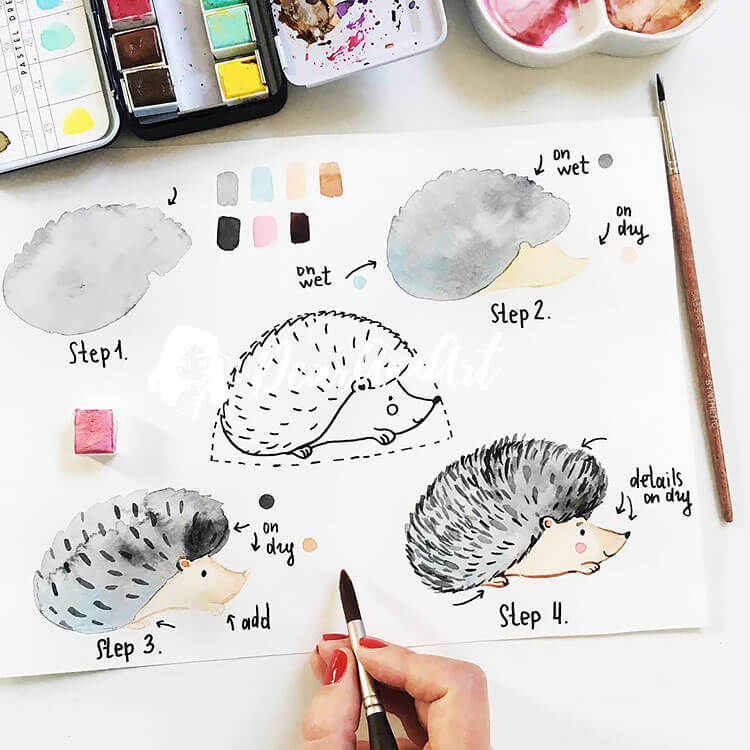 PASTEL DRE
on
wet
on
dry
on
wet
Step 2.
Step 1.
DearAnnArt
on
dry
add
Step 3.
details
on dry
Step 4.
SYNTHETIC